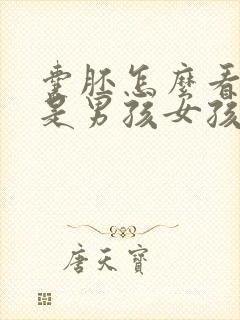 囊胚怎麼看
是男孩女孩
唐天寶